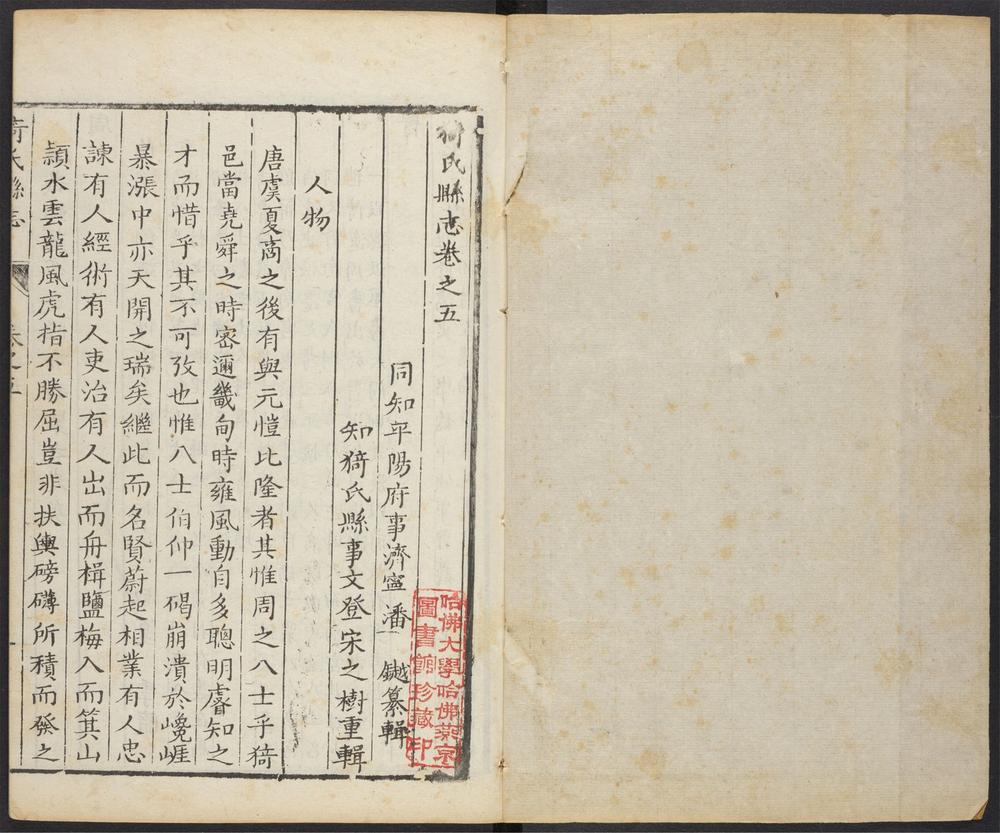 猗氏縣志卷之五
同知平陽府事濟寧潘 鉞纂輯
知猗氏縣事文登宋之樹重輯
人物
唐虞夏商之後有與元愷比隆者其惟周之八士乎猗
邑當堯舜之時密邇畿甸時雍風動自多聰明睿知之
才而惜乎其不可攷也惟八士伯仲一碣崩潰於巉崕
暴漲中亦天開之瑞矣繼此而名賢蔚起相業有人忠
諫有人經術有人吏治有人出而舟楫鹽梅入而箕山
潁水雲龍風虎指不勝屈豈非扶輿磅礴所積而發之
猗氏縣志
卷之五
哈佛大學哈佛燕京
圖書館珍藏印